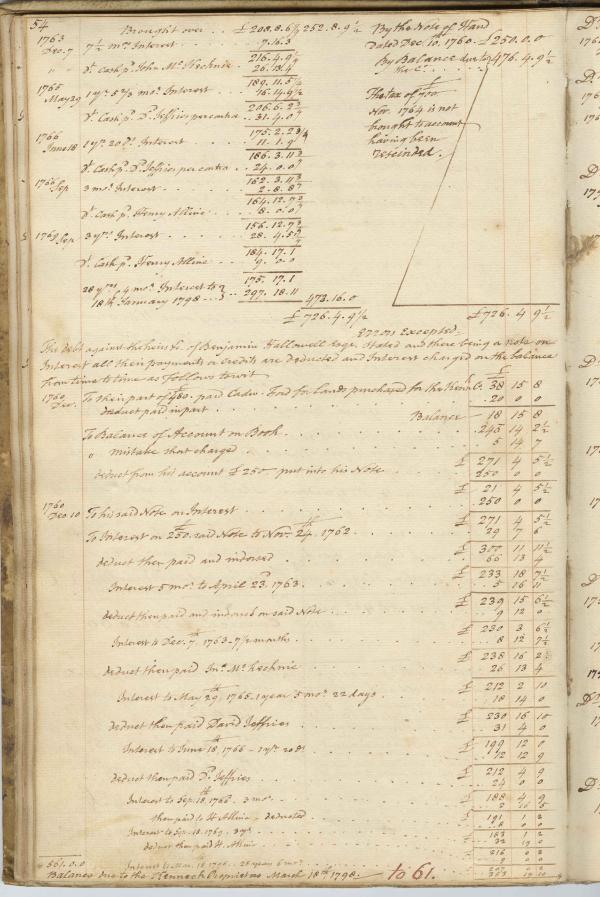 54
1763 Brought over . . £208.8.6½ 252.8.9½
Dec. 7 7½ mos Interest . . . 7.16.3
216.4.9½
" " Do. Cash p. John McKechnie . . 26.13.4
1765 189.11.5½
May 29 1 yr 5 2/3 mo. Interest . . 16.14.9½
206.6.2¾
Do. Cash p. D. Jeffries per contra . . 31.4.0
1766 175.2.2¾
June 18 1 yr 20 Ds. Interest . . . 11.1.9
186.3.11¾
Do. Cash p. D. Jeffries per contra . . 24.0.0
1766 Sep 162.3.11¾
3 mos Interest . . . . 2.8.8
164.12.7¾
Do. Cash p. Henry Alline . . 8.0.0
156.12.7¾
1769 Sep. 3 yrs. Interest . . . . 28.4.5
184.17.1
Do. Cash p. Henry Alline . . 9.0.0
175.17.1
28 yrs. 4 mos. Interest to
18th January 1798 297.18.11 473.16.0
£726.4.9½
By the Note of Hand
Dated Dec. 10th, 1760. £250.0.0
By Balance due to 476.4.9½
the C
The tax of
Nov. 1764 is not
bought to account
having been
rescinded.
£726.4 9½
Excepted.
The debt against the heirs &c. of Benjamin Hallowell Esqr. Stated and there being a note on
Interest all their payments or credits are deducted and Interest charged on the balance
from time to time as follows to wit
1760 Dec. To their part of 480. paid Cadw. Ford for Lands purchased for the 38 15 8
deduct paid in part . . . 20 0 0
Balance 18 15 8
To Balance of Account on Book . . . 245 14 2½
" mistake that charged . . . 5 14 7
£ 271 4 5½
deduct from his account £250 put into his Note . . 250 0 0
£ 21 4 5½
1760 Dec. 10 To his said Note on Interest . . . 250 0 0
£ 271 4 5½
To Interest on 250 said Note to Novr. 24th, 1762 . . 29 7 6
£ 300 11 11½
deduct then paid and indorsed . . . 66 13 4
£ 233 18 7½
Interest 5 mos. to April 23d. 1763 . . . 5 16 11
£ 239 15 6½
deduct then paid and indorsed on said Note . . 9 12 0
£ 230 3 6½
Interest to Dec. 7th, 1763 - 7½ months . . 8 12 7½
£ 238 16 2
deduct then paid Jno. McKechnie . . . 26 13 4
£ 212 2 10
Interest to May 29th, 1765. 1 year 5 mos. 22 days . . 18 14 0
£ 230 16 10
deduct then paid David Jeffries . . . 31 4 0
£ 199 12 0
Interest to June 18th, 1766 - 1 yr. 20 ds. . . 12 12 9
£ 212 4 9
deduct then paid D. Jeffries . . . 24 0 0
£ 188 4 9
Interest to Sep. 18th, 1766 . 3 mos. . . 2 16 5
191 1 2
then paid to H Alline, deducted . . 8 0 0
183 1 2
Interest to Sep. 18. 1769. 3 yrs. . . 32 19 0
216 0 2
deduct then paid H. Alline . . 9 0 0
207 0 2
Interest to Mar. 18. 1798 . 28 years 6 mos.
561.0.0
Balance due to the Kennebeck Proprietors March 18th, 1798. to 61.